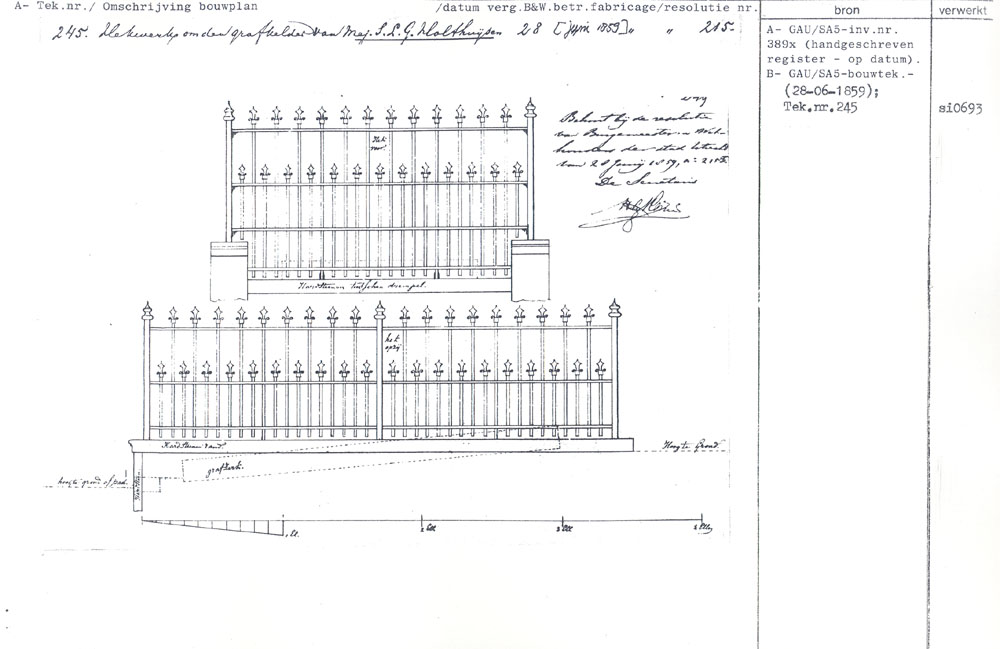 A- Tek.nr./ Omschrijving bouwplan /datum verg.B&W.betr.fabricage/resolutie nr.
bron
verwerkt
245. Hekwerk om den grafkelder van Mej. S.L.G. Holthuijsen 28 [juni 1859] " " 215-
A- GAU/SA5-inv.nr.
389x (handgeschreven
register - op datum).
B- GAU/SA5-bouwtek.-
(28-06-1859);
Tek.nr.245
si0693
Behoort bij de resolutie
van Burgemeester en Weth-
houders der stad Utrecht
van 28 Junij 1859, n°. 215
De Secretaris
Hek
voor.
Hardsteenen drempel.
hek
opzij
Hardsteen rand.
Hoogte Grond
grafzerk.
hoogte grond of pad.
Hardsteen
1 El.
2 Ell.
3 Ell.
4 Ellen